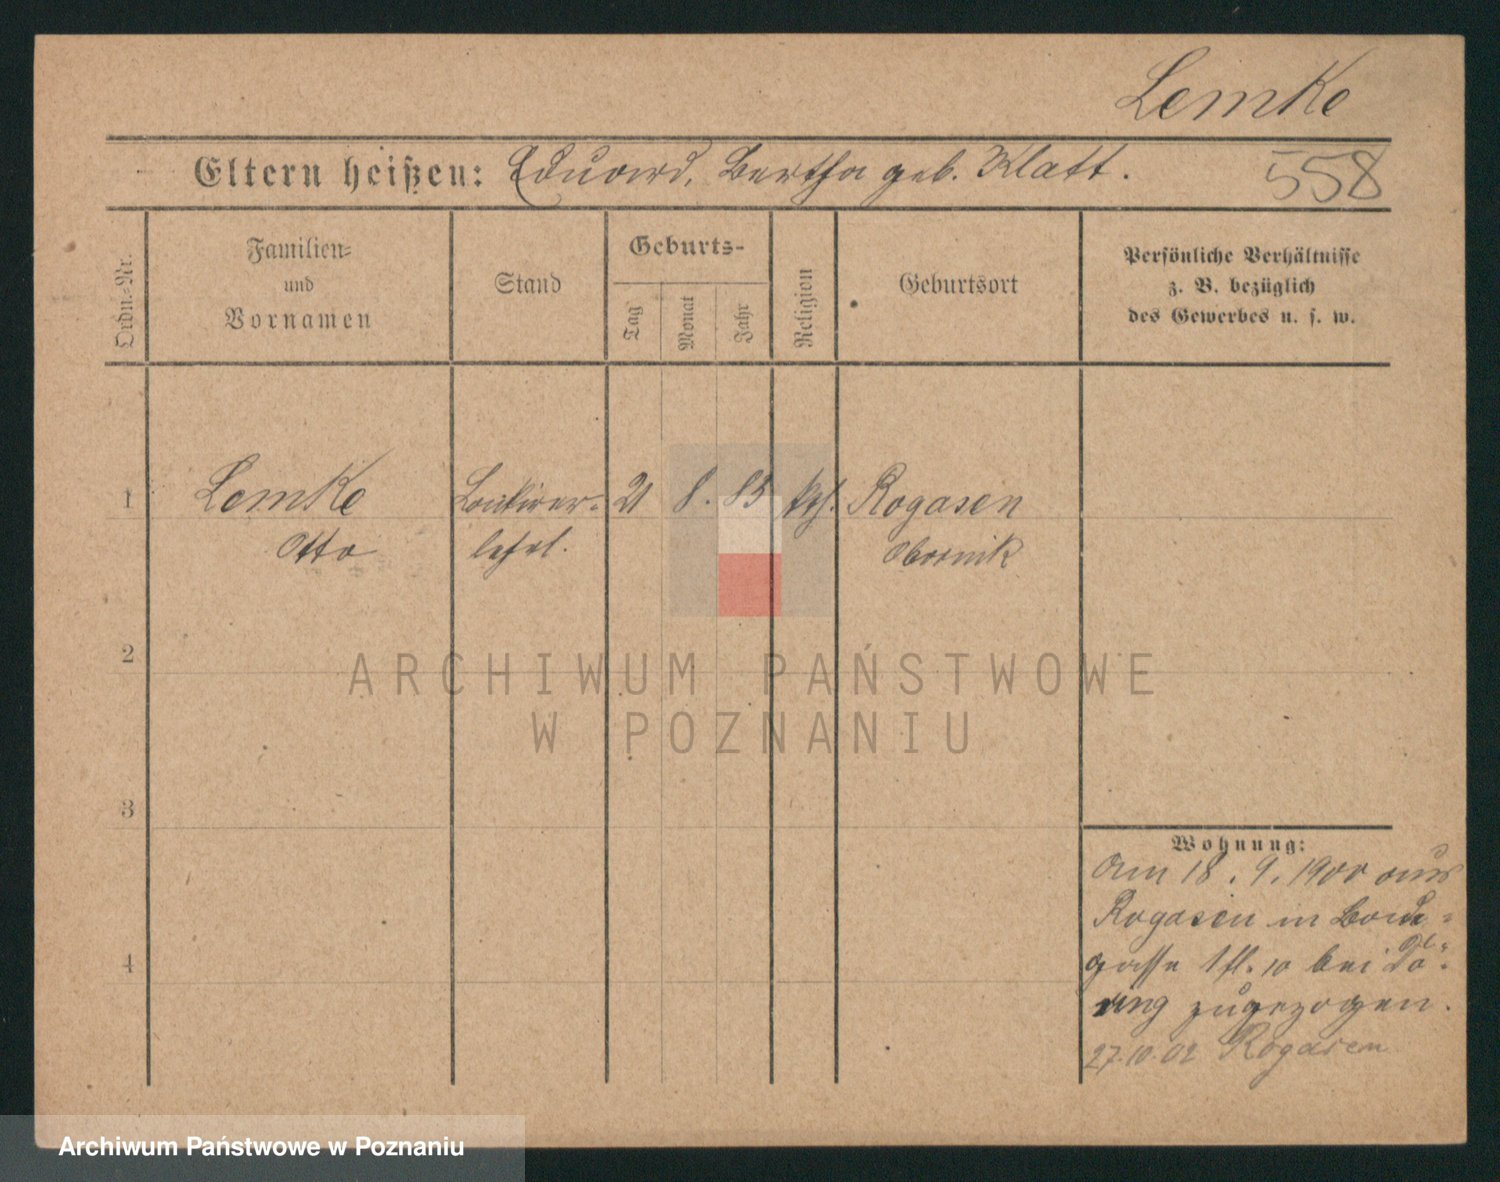 Lemke
Eltern heißen: Eduard, Bertha geb. Klatt.
558
Ordn.-Nr.
Familien-
und
Vornamen
Stand
Geburts-
Tag
Monat
Jahr
Religion
Geburtsort
Persönliche Verhältnisse
z. B. bezüglich
des Gewerbes u. s. w.
1 Lemke 21 8. 85 Rogasen
Otto lehrl. Obornik
2
ARCHIWUM PAŃSTWOWE
W POZNANIU
3
Wohnung:
Am 18. 9. 1900 aus
Rogasen in
4
gasse 1 fl. 10 bei Dö-
ring zugezogen.
27.10.02 Rogasen
Archiwum Państwowe w Poznaniu